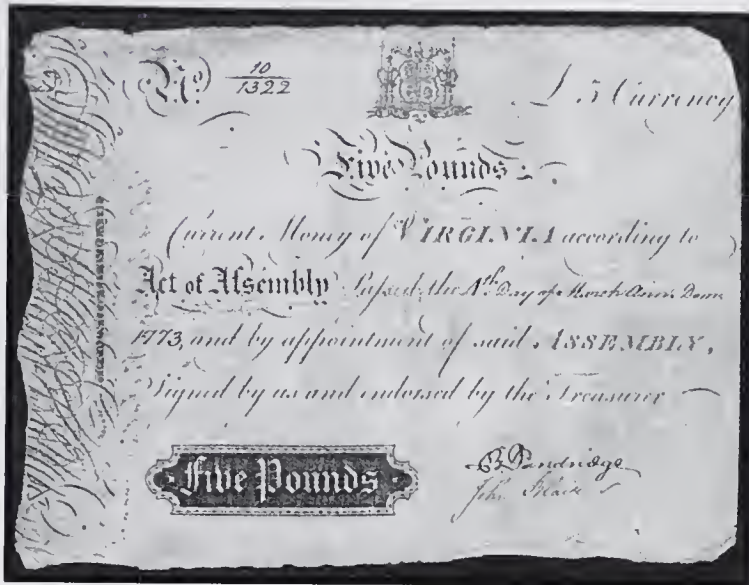 No. 10/1322
£ 5 Currency
Five Pounds
Current Money of VIRGINIA according to
Act of Assembly Passed the 4th Day of March Anno Dom
1773, and by appointment of said ASSEMBLY,
Signed by us and endorsed by the Treasurer
Five Pounds
B Dandridge
John Blair